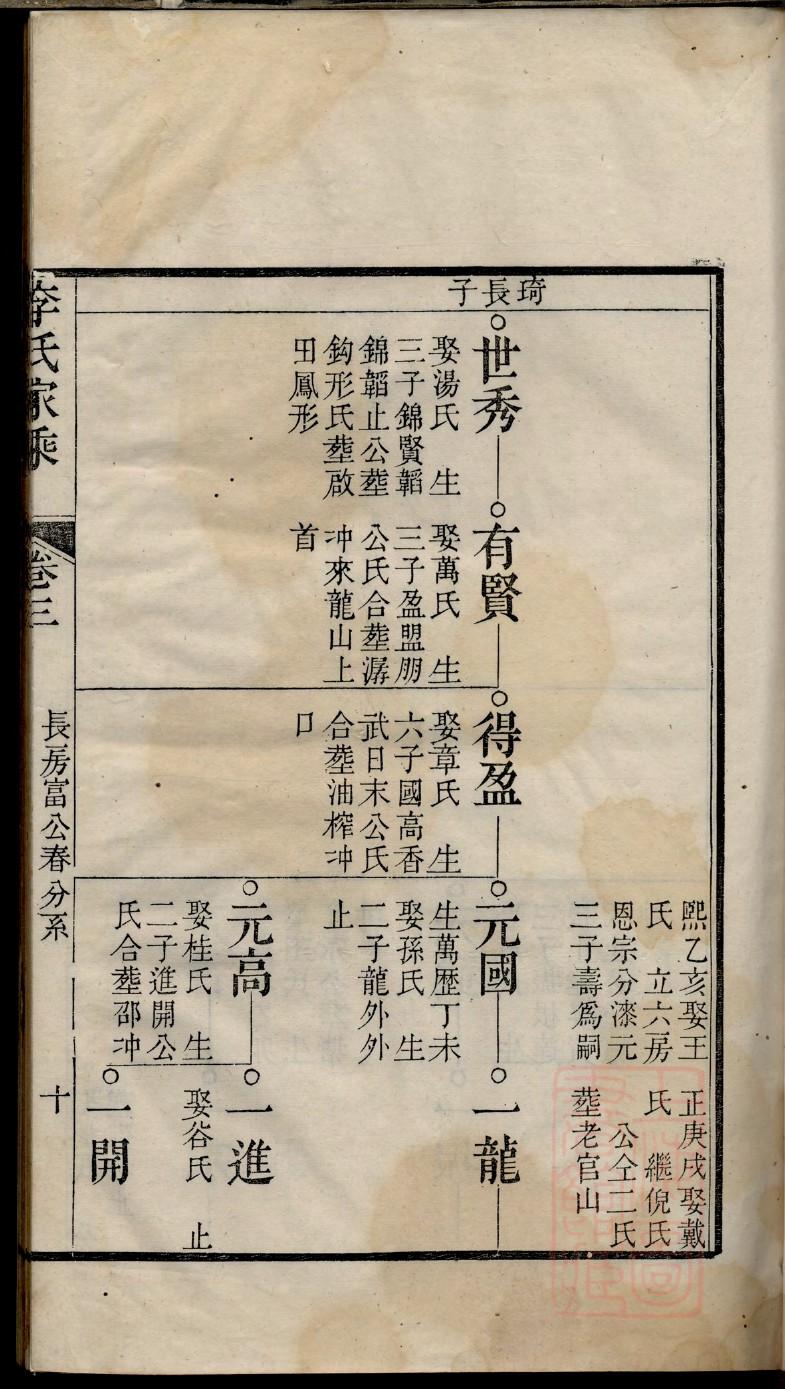 琦長子
世秀
娶湯氏　生
三子錦賢韜
錦韜止公塟
鈎形氏塟啟
田鳳形
有賢
娶萬氏　生
三子盈盟朋
公氏合塟潺
冲來龍山上
首
得盈
娶章氏　生
六子國高香
武日末公氏
合塟油榨冲
口
熙乙亥娶王
氏　立六房
恩宗分漆元
三子壽爲嗣
元國
生萬歷丁未
娶孫氏　生
二子龍外外
止
元高
娶桂氏　生
二子進開公
氏合塟邵冲
正庚戌娶戴
氏　繼倪氏
公仝二氏
塟老官山
一龍
一進
娶谷氏　止
一開
李氏家乘
卷三
長房富公春分系
十